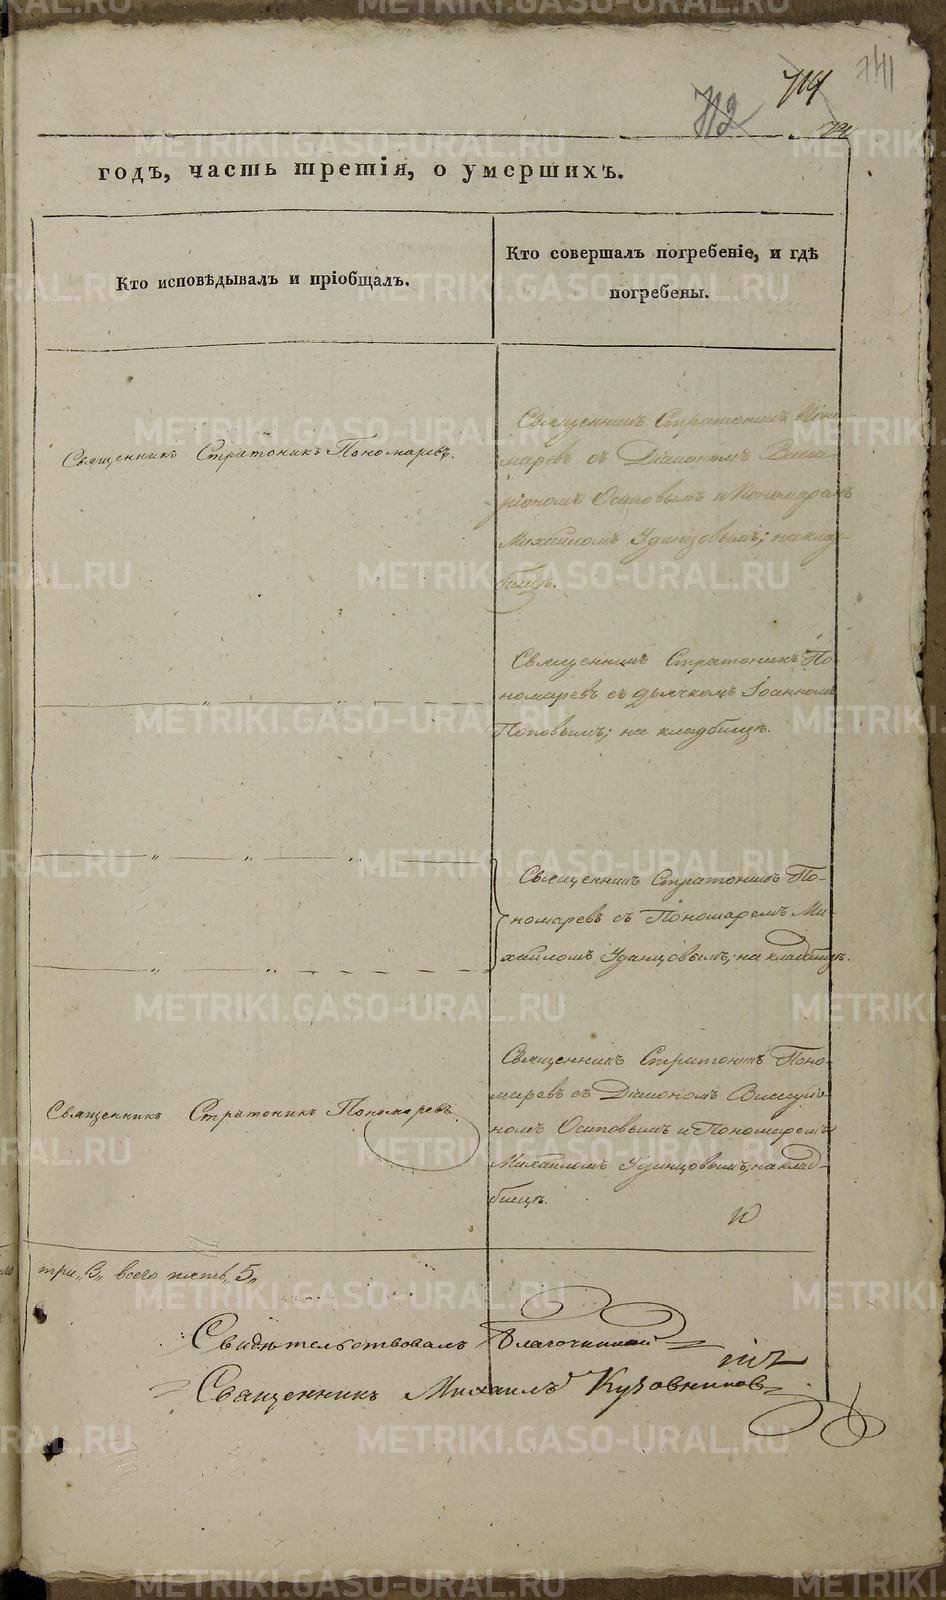 712
714
741
годъ, часть третія, о умершихъ.
Кто исповѣдывалъ и пріобщалъ.
Кто совершалъ погребеніе, и гдѣ
погребены.
Священникъ Стратоникъ Пономаревъ.
Священникъ Стратоникъ Поно-
маревъ съ Діакономъ Висса-
ріономъ Осиповымъ и Пономаремъ
Михайломъ Удинцовымъ; на клад-
бищѣ.
Священникъ Стратоникъ По-
номаревъ съ дьячкомъ Іоанномъ
Поповымъ; на кладбищѣ.
Священникъ Стратоникъ По-
номаревъ съ Пономаремъ Ми-
хайломъ Удинцовымъ; на кладбищѣ.
Священникъ Стратоникъ Пономаревъ.
Священникъ Стратоникъ Поно-
маревъ съ Діакономъ Виссаріо-
номъ Осиповымъ и Пономаремъ
Михайломъ Удинцовымъ; на клад-
бищѣ.
три „3„ всего пять „5„
Свидѣтельствовалъ Благочинный
Священникъ Михаилъ Кузовниковъ
METRIKI.GASO-URAL.RU